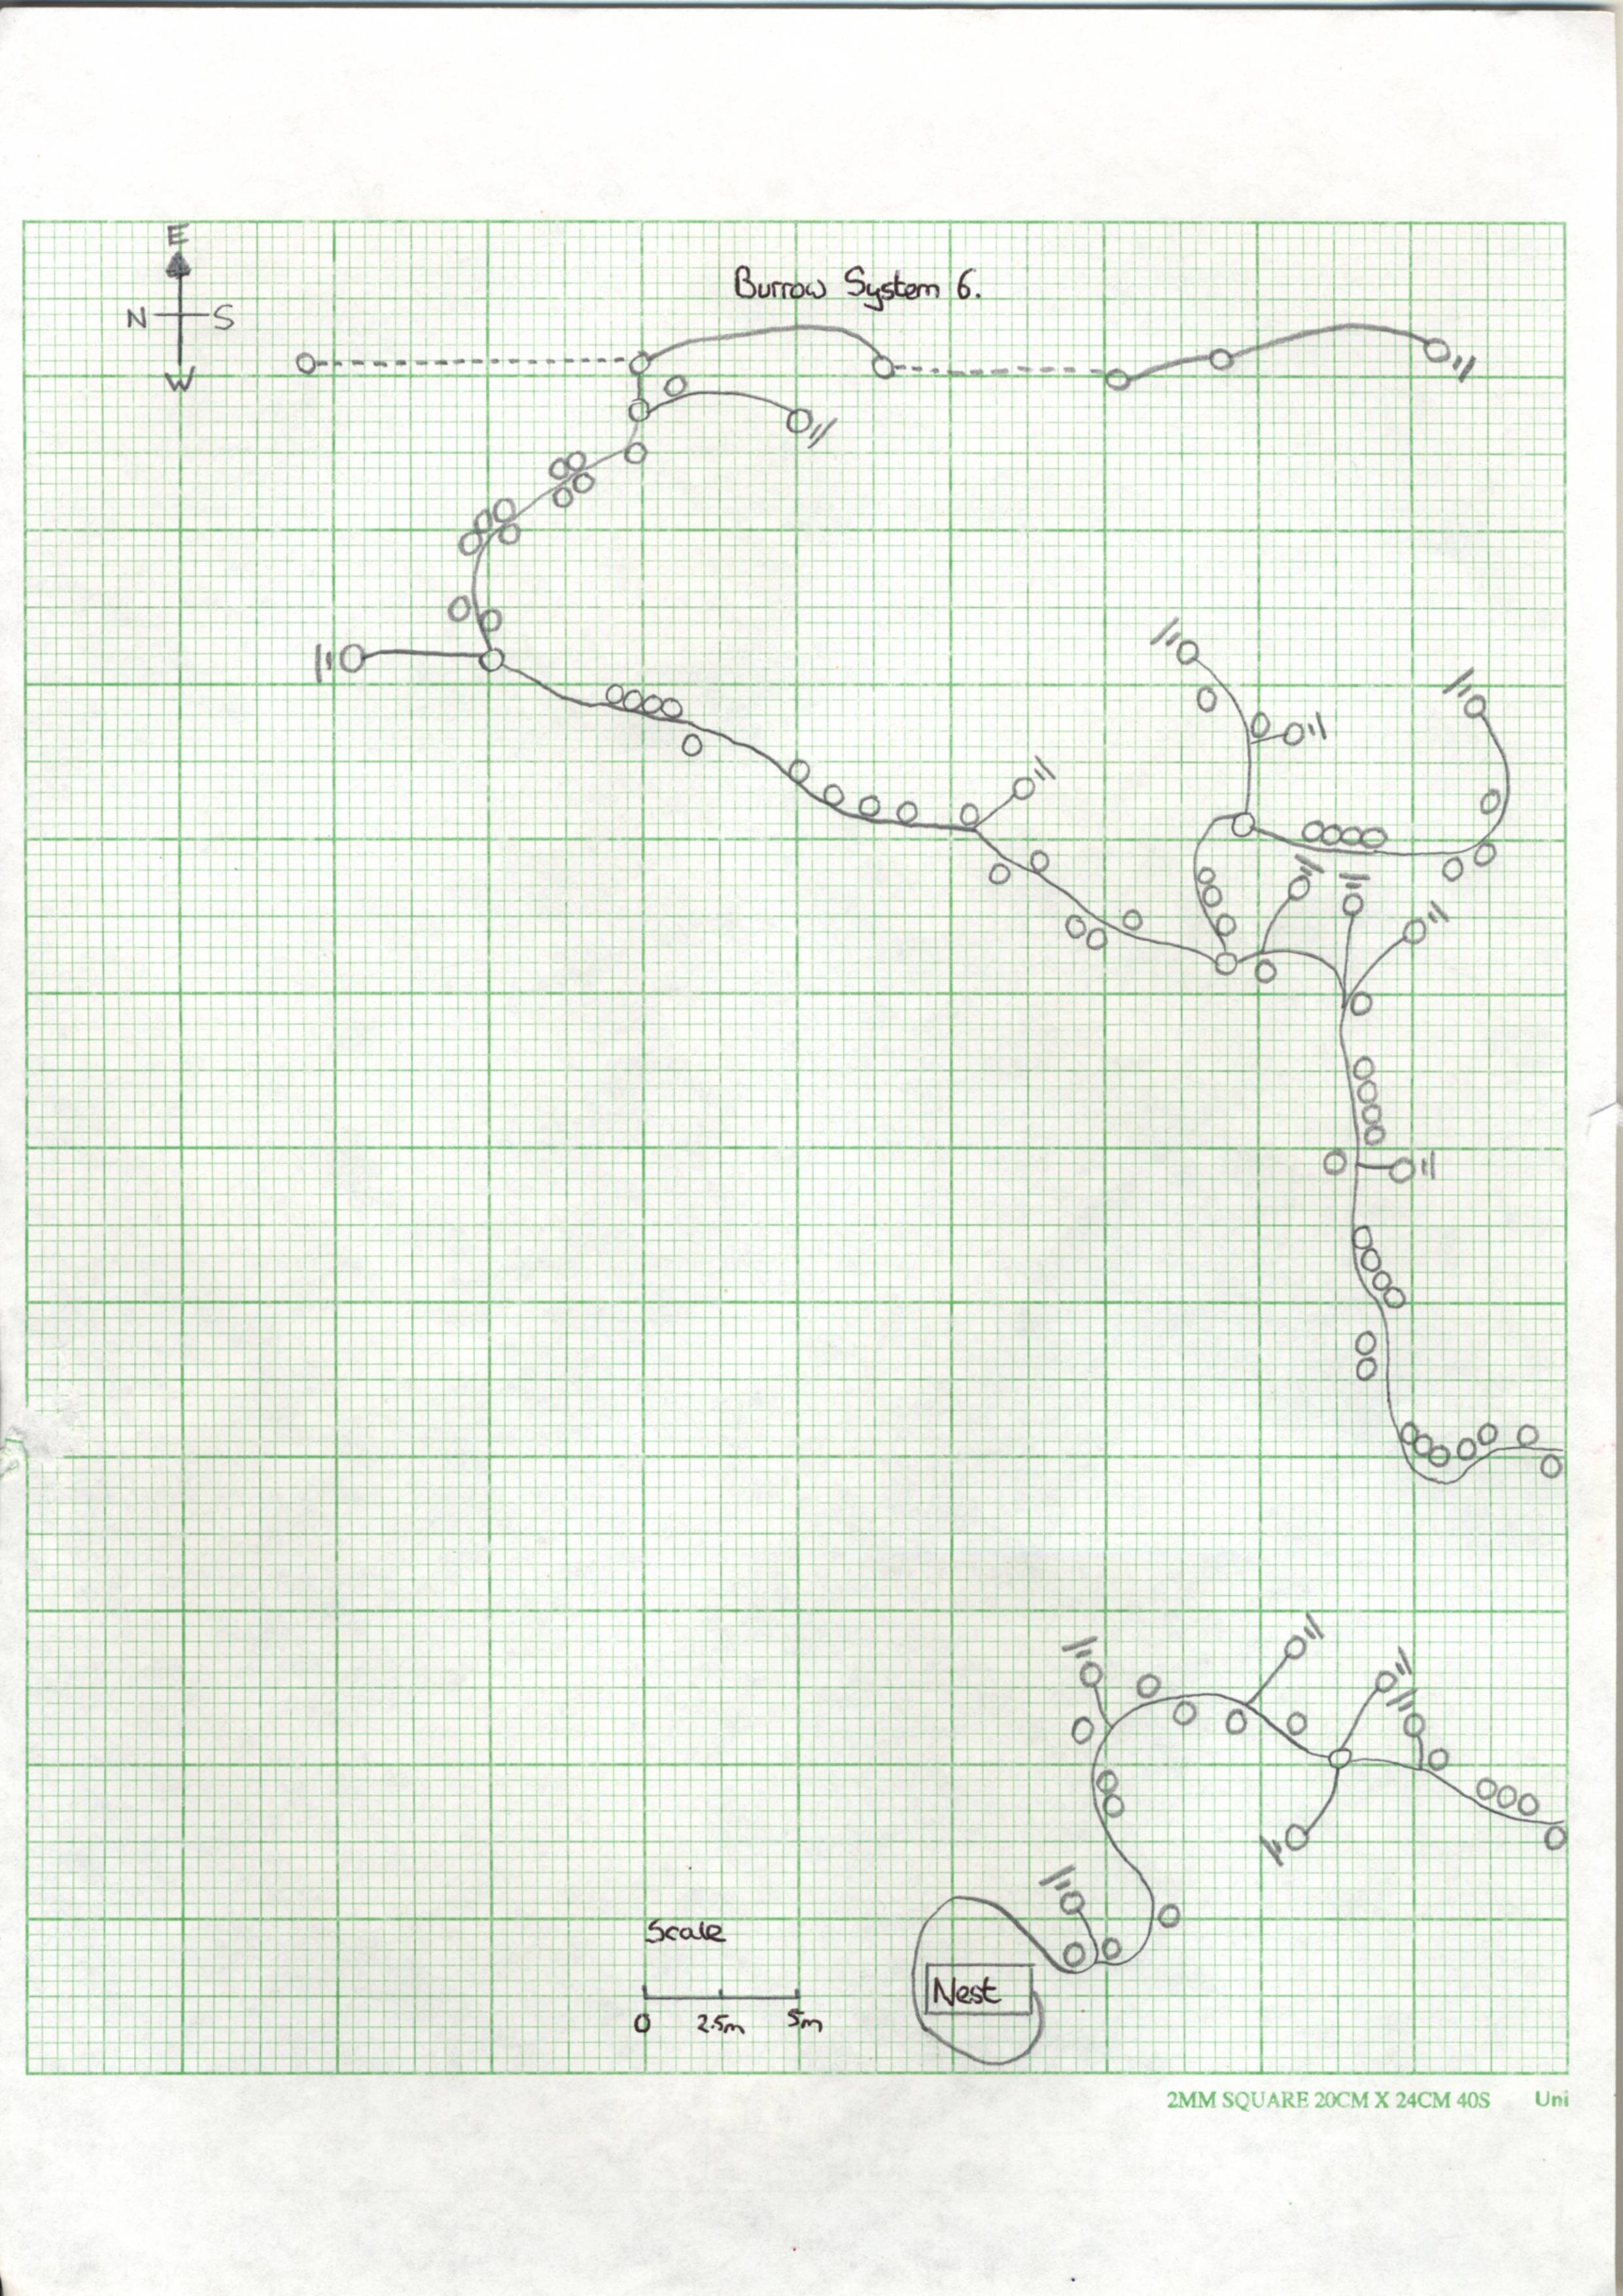 E
Burrow System 6.
N S
W
Scale
Nest
0 2.5m 5m
2MM SQUARE 20CM X 24CM 40S Uni